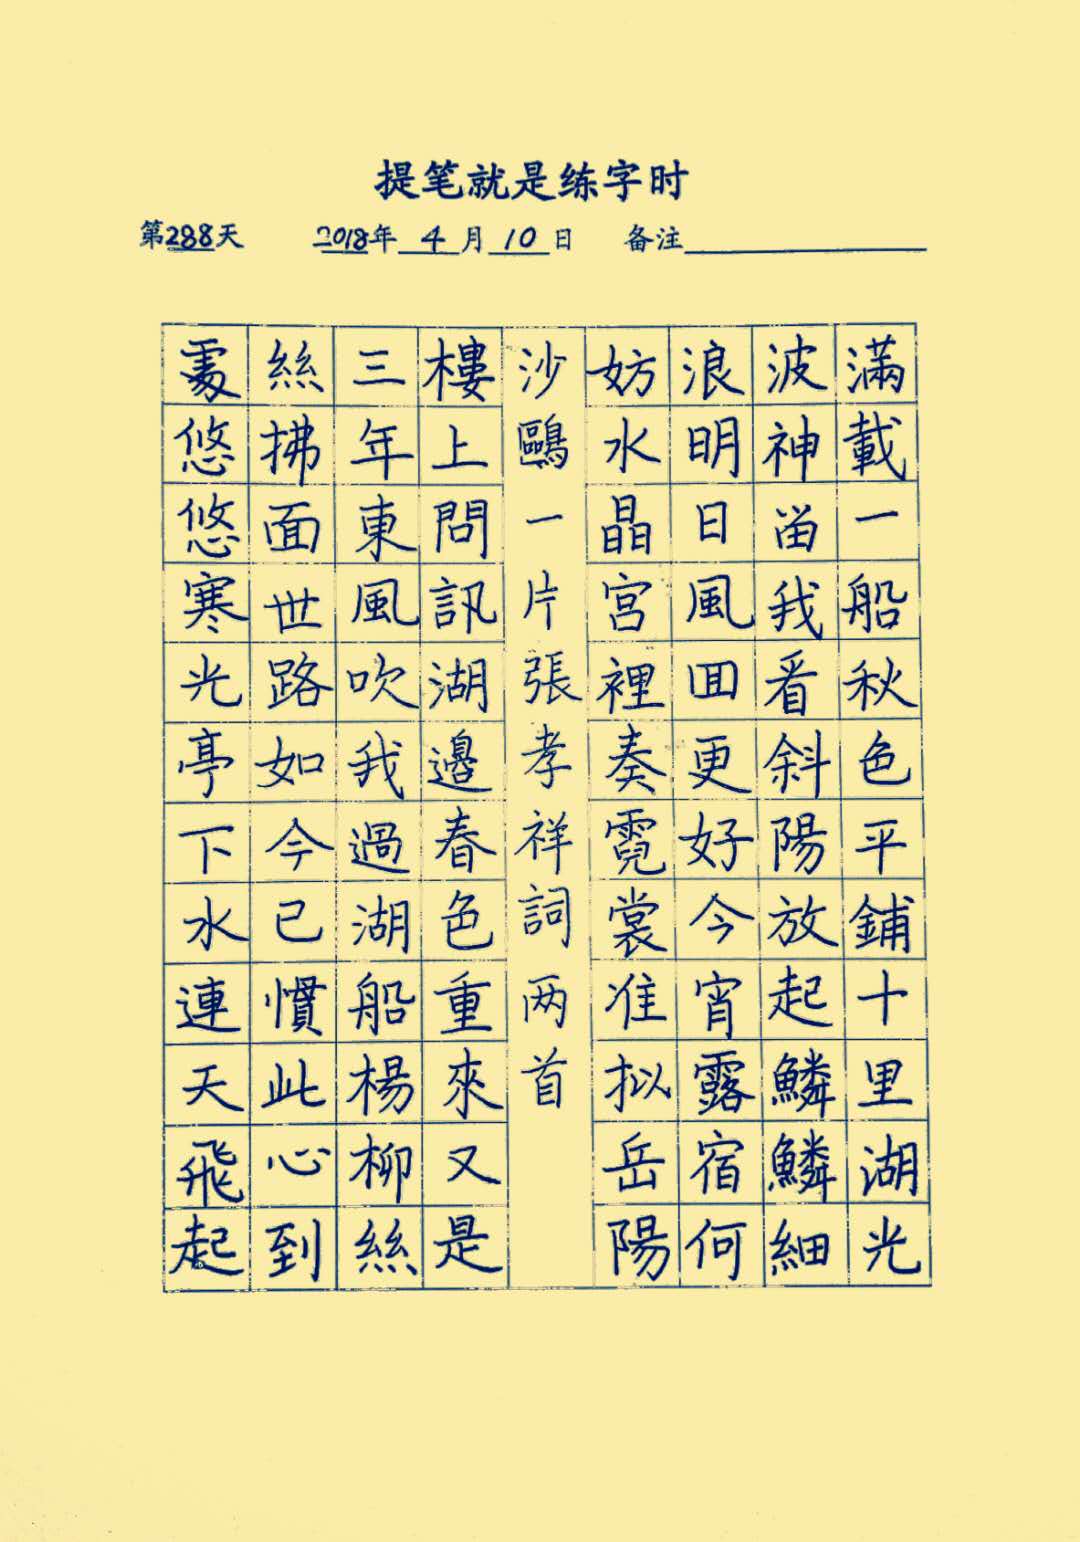 提笔就是练字时
第288天 2018年4月10日 备注
滿載一船秋色平鋪十里湖光
波神畄我看斜陽放起鱗鱗細
浪明日風囬更好今宵露宿何
妨水晶宮裡奏霓裳准拟岳陽
沙鷗一片張孝祥詞两首
樓上問訊湖邊春色重來又是
三年東風吹我過湖船楊柳絲
絲拂面世路如今已慣此心到
處悠悠寒光亭下水連天飛起